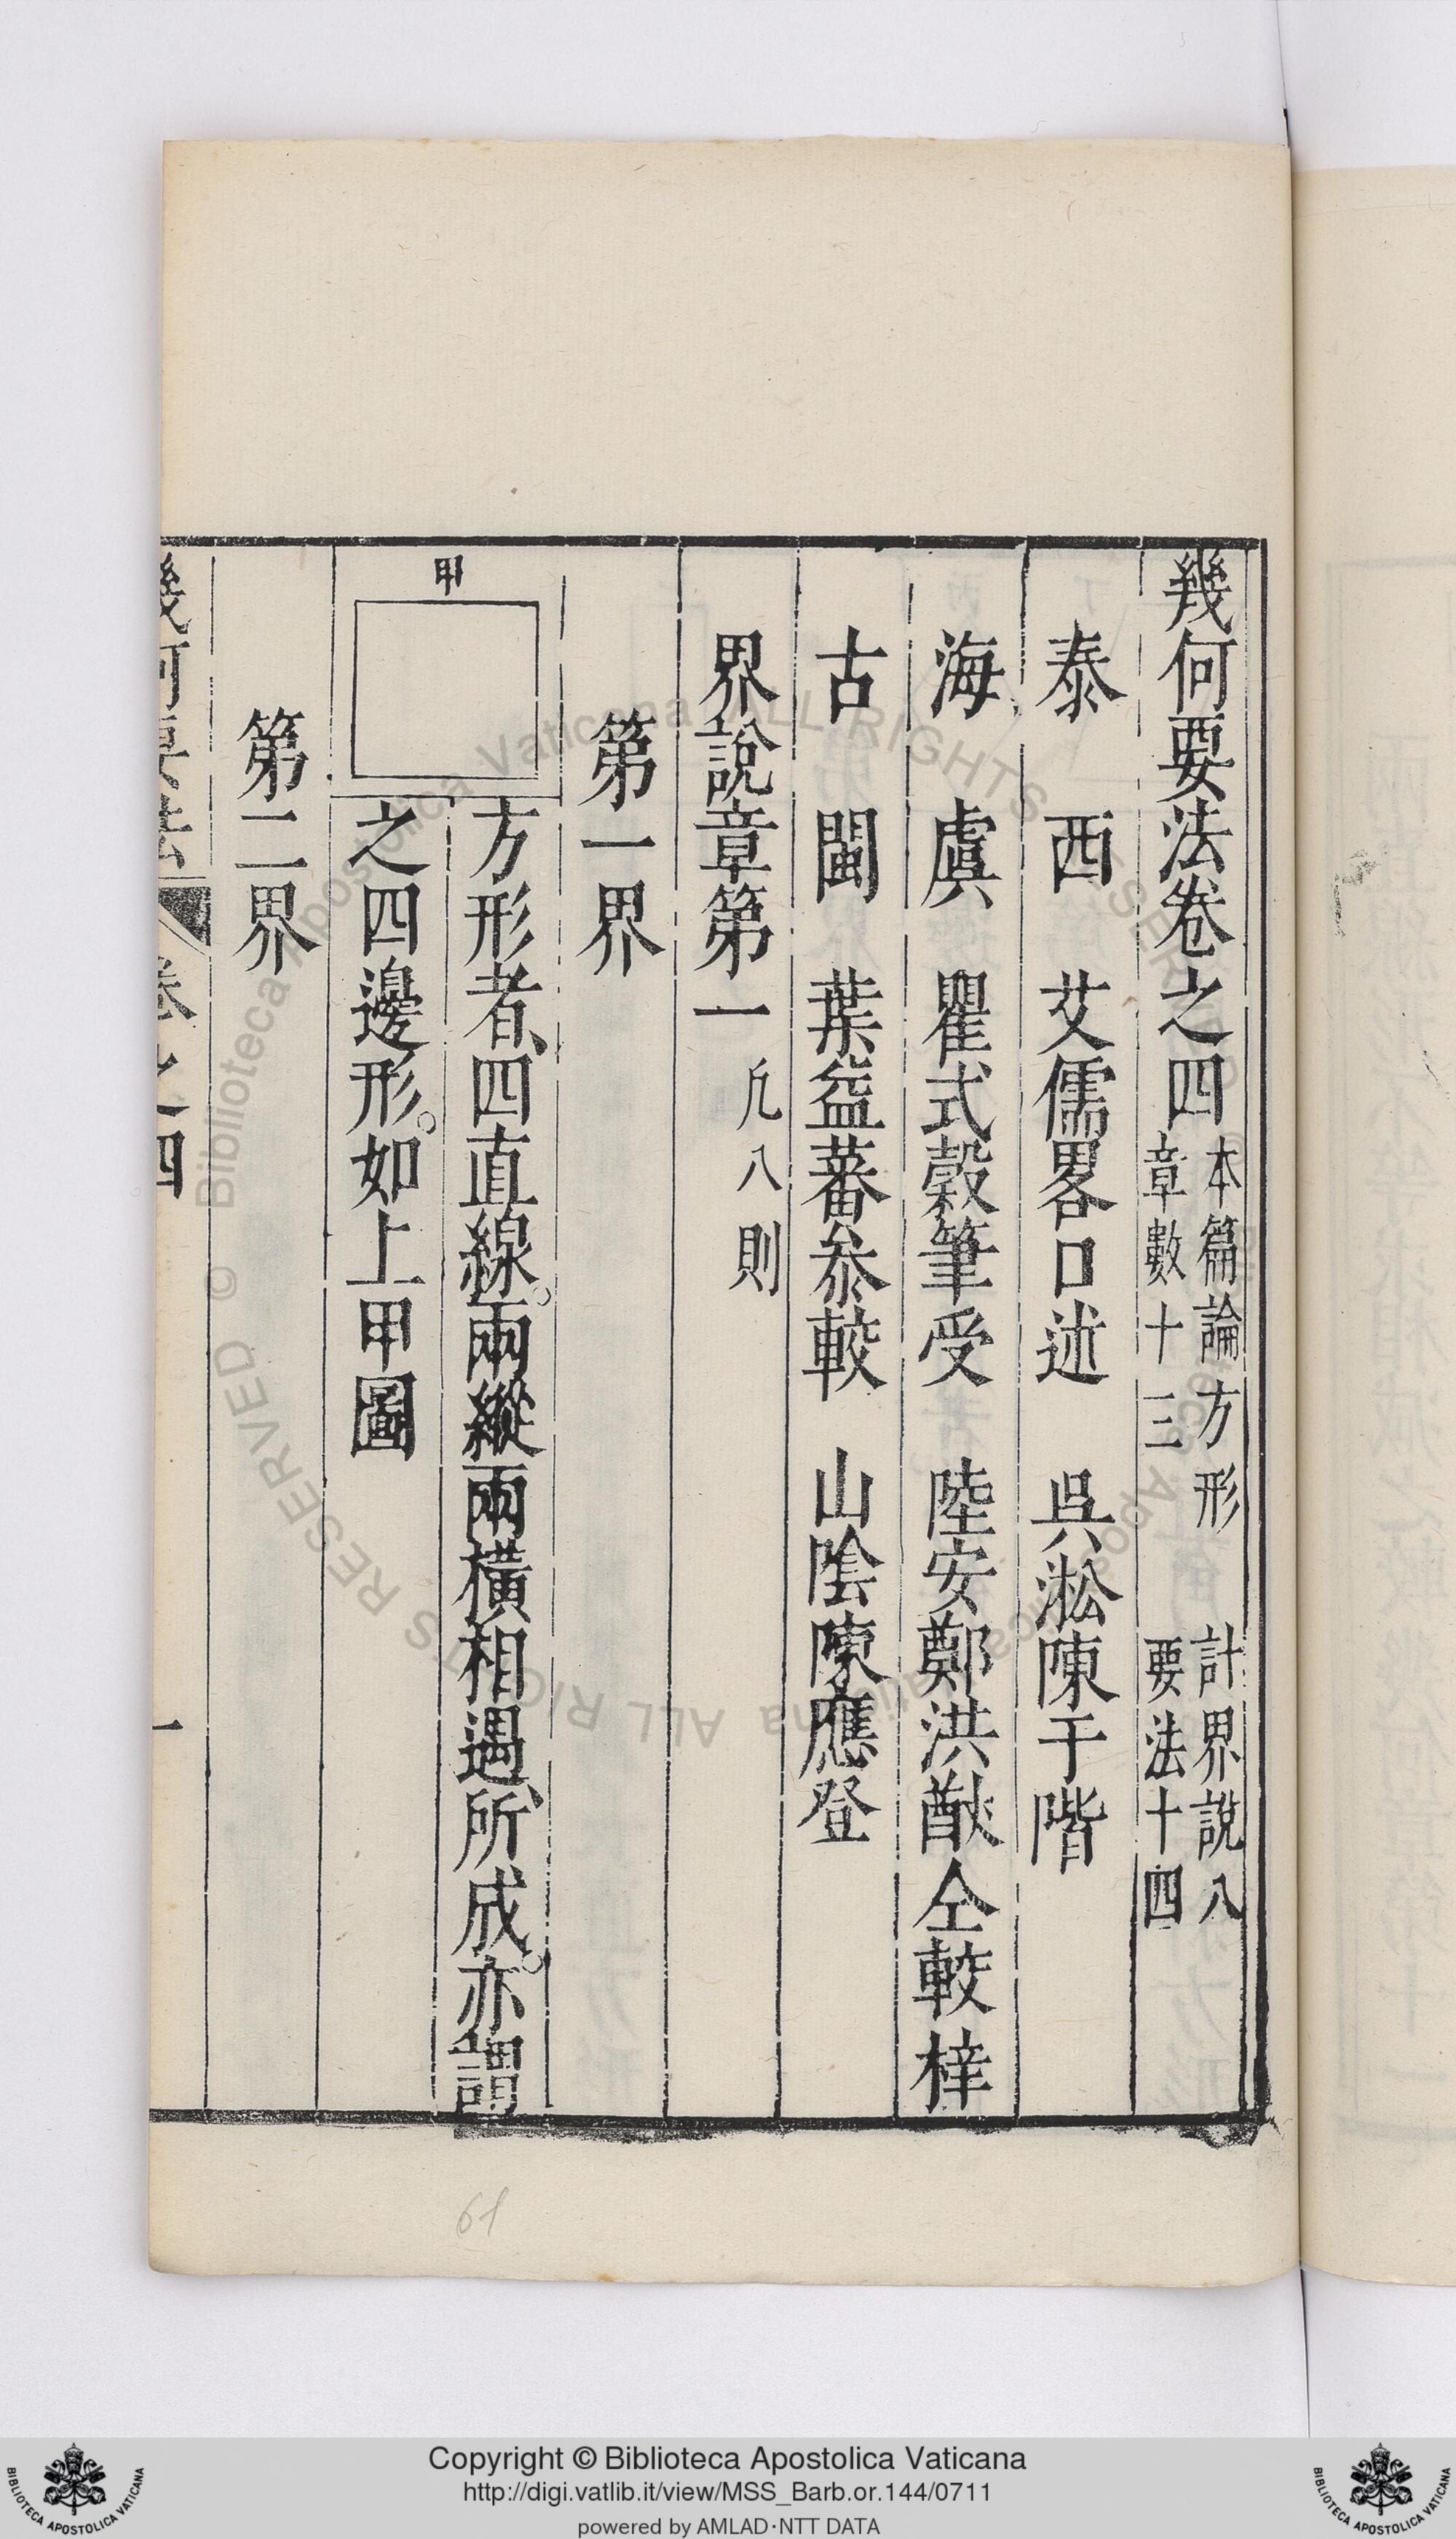 幾何要法卷之四 本篇論方形 計界說八
章數十三 要法十四
泰西 艾儒畧口述 吳淞陳于階
海虞 瞿式穀筆受 陸安鄭洪猷仝較梓
古閩 葉益蕃叅較 山陰陳應登
界說章第一 凡八則
第一界
甲
方形者、四直線。兩縱兩橫相遇、所成。亦謂
之四邊形。如上甲圖
第二界
幾何要法 卷之四 一
61
© Biblioteca Apostolica Vaticana ALL RIGHTS RESERVED
Copyright © Biblioteca Apostolica Vaticana
http://digi.vatlib.it/view/MSS_Barb.or.144/0711
powered by AMLAD·NTT DATA
BIBLIOTECA APOSTOLICA VATICANA
BIBLIOTECA APOSTOLICA VATICANA